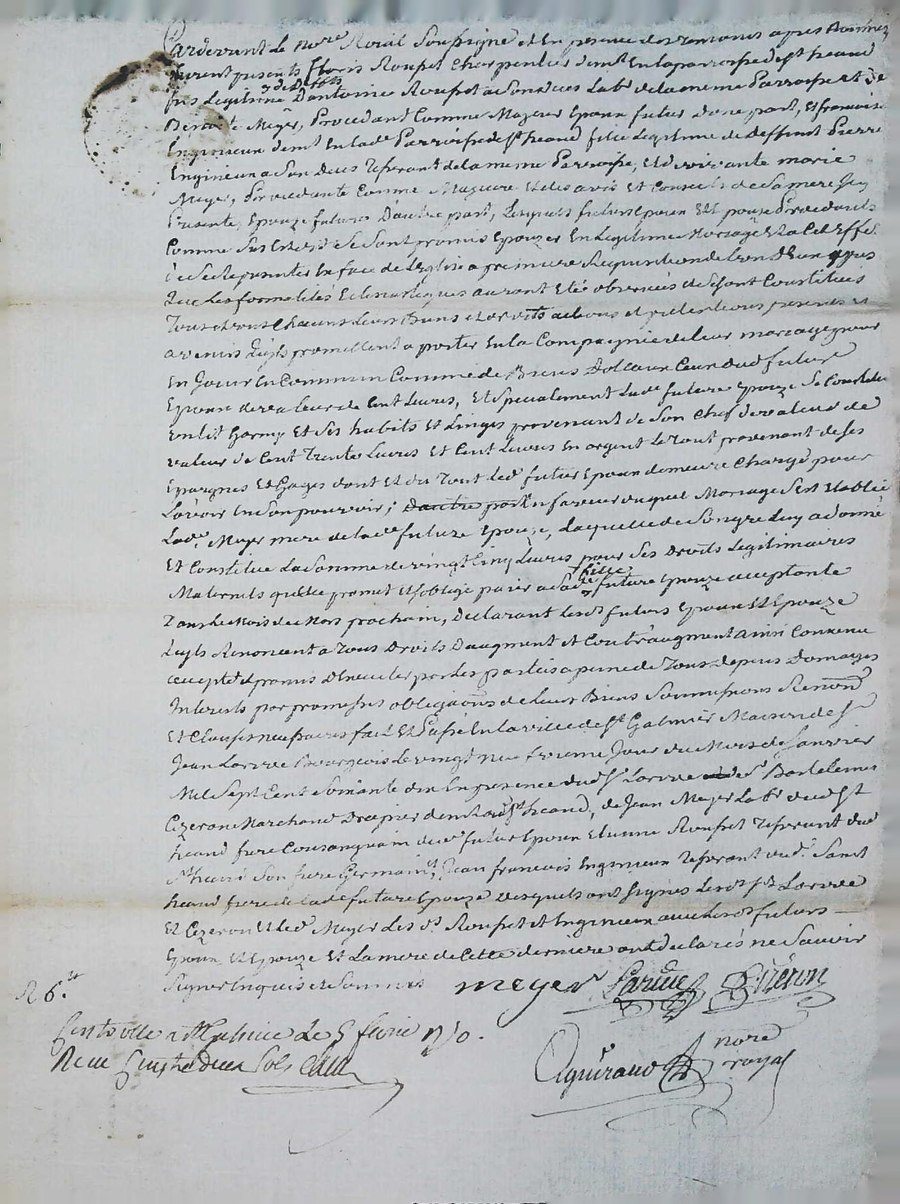 Pardevant Le no.re Roial Soussigné et En presence des temoins apres Nommés
furent presents Floris Roufet Charpentier dem.t En la parroisse de s.t heand
fils Legitime D'antoine Roufet Lab.r de la meme Parroisse et de
Meyer, Procedant Comme Majeur Epoux futur D'une part, Et francoise
Engineieux dem.t En lad.e Parroisse de s.t heand fille Legitime de deffunt Pierre
Engineieux a Son Deces de la meme Parroise, et de vivante marie
Meyer, Procedante Comme Majeure et des avis et Conseils de Sa mere Icy
Presente, Epouze future D'autre part, Lesquels futurs Epoux Et Epouze Procedants
Comme Sus Est de Se Sont promis Epouzer En Legitime Mariage Et a Cet Effet
de Se Représenter En face de L'Eglise a premiere Requisition de L'un D'eux apres
Que Les formalités Eclesiastiques auront Eté observées Se Sont Constitués
Tous et uns Chacuns Leurs Biens et droits presents et
avenirs Qu'ils promettent aporter En la Compagnie de leur mariage pour
En Jouir En Commun Comme de Biens Dotaux Ceux dud futur
Epoux de valeur de Cent Livres, Et Specialement Lad.e future Epouze Se Constitue
un lit Garny Et Ses habits Et Linges provenant de Son Chef de valeur de
valeur de Cent Trente Livres Et Cent Livres En argent Le Tout provenant de Ses
Epargnes Et Gages dont Et du Tout Led.t futur Epoux demeure Chargé pour
L'avoir En Son pouvoir; En faveur duquel Mariage S'est Etablie
Lad.e Meyer mere de lad.e future Epouze, Laquelle de Son gre Luy a donné
Et Constitué La Somme de vingt Cinq Livres pour Ses Droits Legitimaires
Maternels qu'elle promet et S'oblige paier a Sad.e fille future Epouze acceptante
Dans Le Mois de Mars prochain, Declarant Lesd.s futurs Epoux Et Epouze
Qu'ils Renoncent a Tous Droits D'augment et Contr'augment ainsi Convenu
accepté et promis D'Executer par Les parties a peine de Tous depens Domages
Interets par promesses obligations de Leurs Biens Soumissions Renon.
Et Clauses necessaires fait Et Passé En la ville de S.t Galmier Maison de S.r
Jean Larive Bourgeois Le vingt neuvieme Jour du Mois de Janvier
Mil Sept Cent Soixante dix En presence dud S.r Larive de S.r Bartelemi
Cizeron Marchand Drapier dem.t aud S.t heand, de Jean Meyer Lab.r dud S.t
heand frere Consanguin du.d futur Epoux Etienne Roufet dud
S.t heand Son frere Germain, Jean francois Engineieux dud. Saint
heand frere de lad.e future Epouze Desquels ont Signés Lesd.s S.rs Larive
Et Cizeron Et led.t Meyer Les d.s Roufet et Engineieux avec Lesd.s futurs
Epoux Et Epouze Et La mere de Cette derniere ont declarés ne Savoir
Signer Enquis et Sommés meyer Larive Cizeron
R 6.tt
Controllé a S.t Galmier Le 5 fevrier 1770.
Recu
no.re
royal